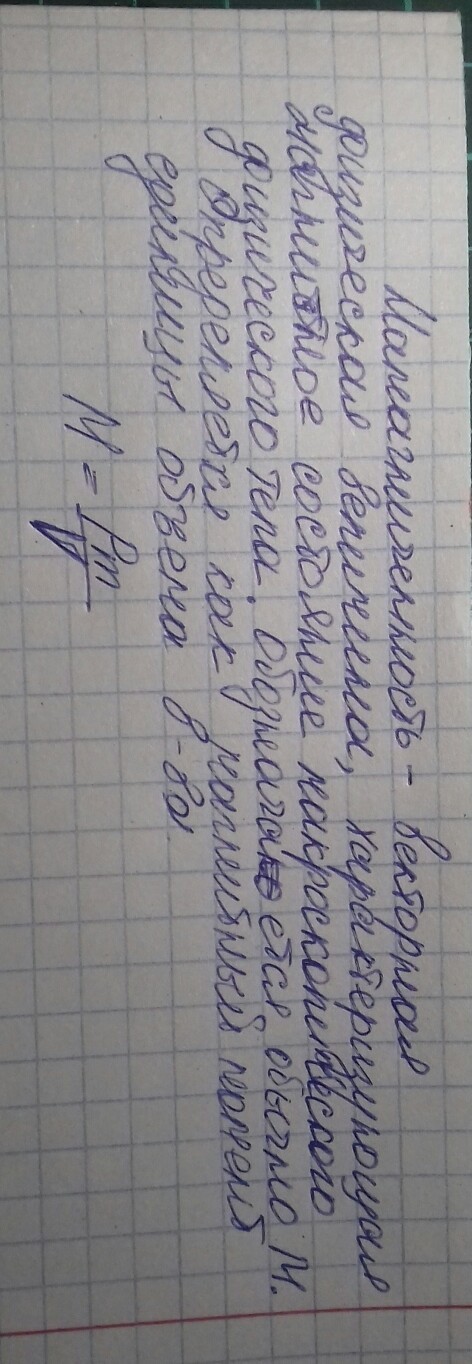 Намагниченность - векторная
физическая величина, характеризующая
магнитное состояние макроскопического
физического тела. Обозначается обычно M.
Определяется как магнитный момент
единицы объема в-ва.
M = Pm
V